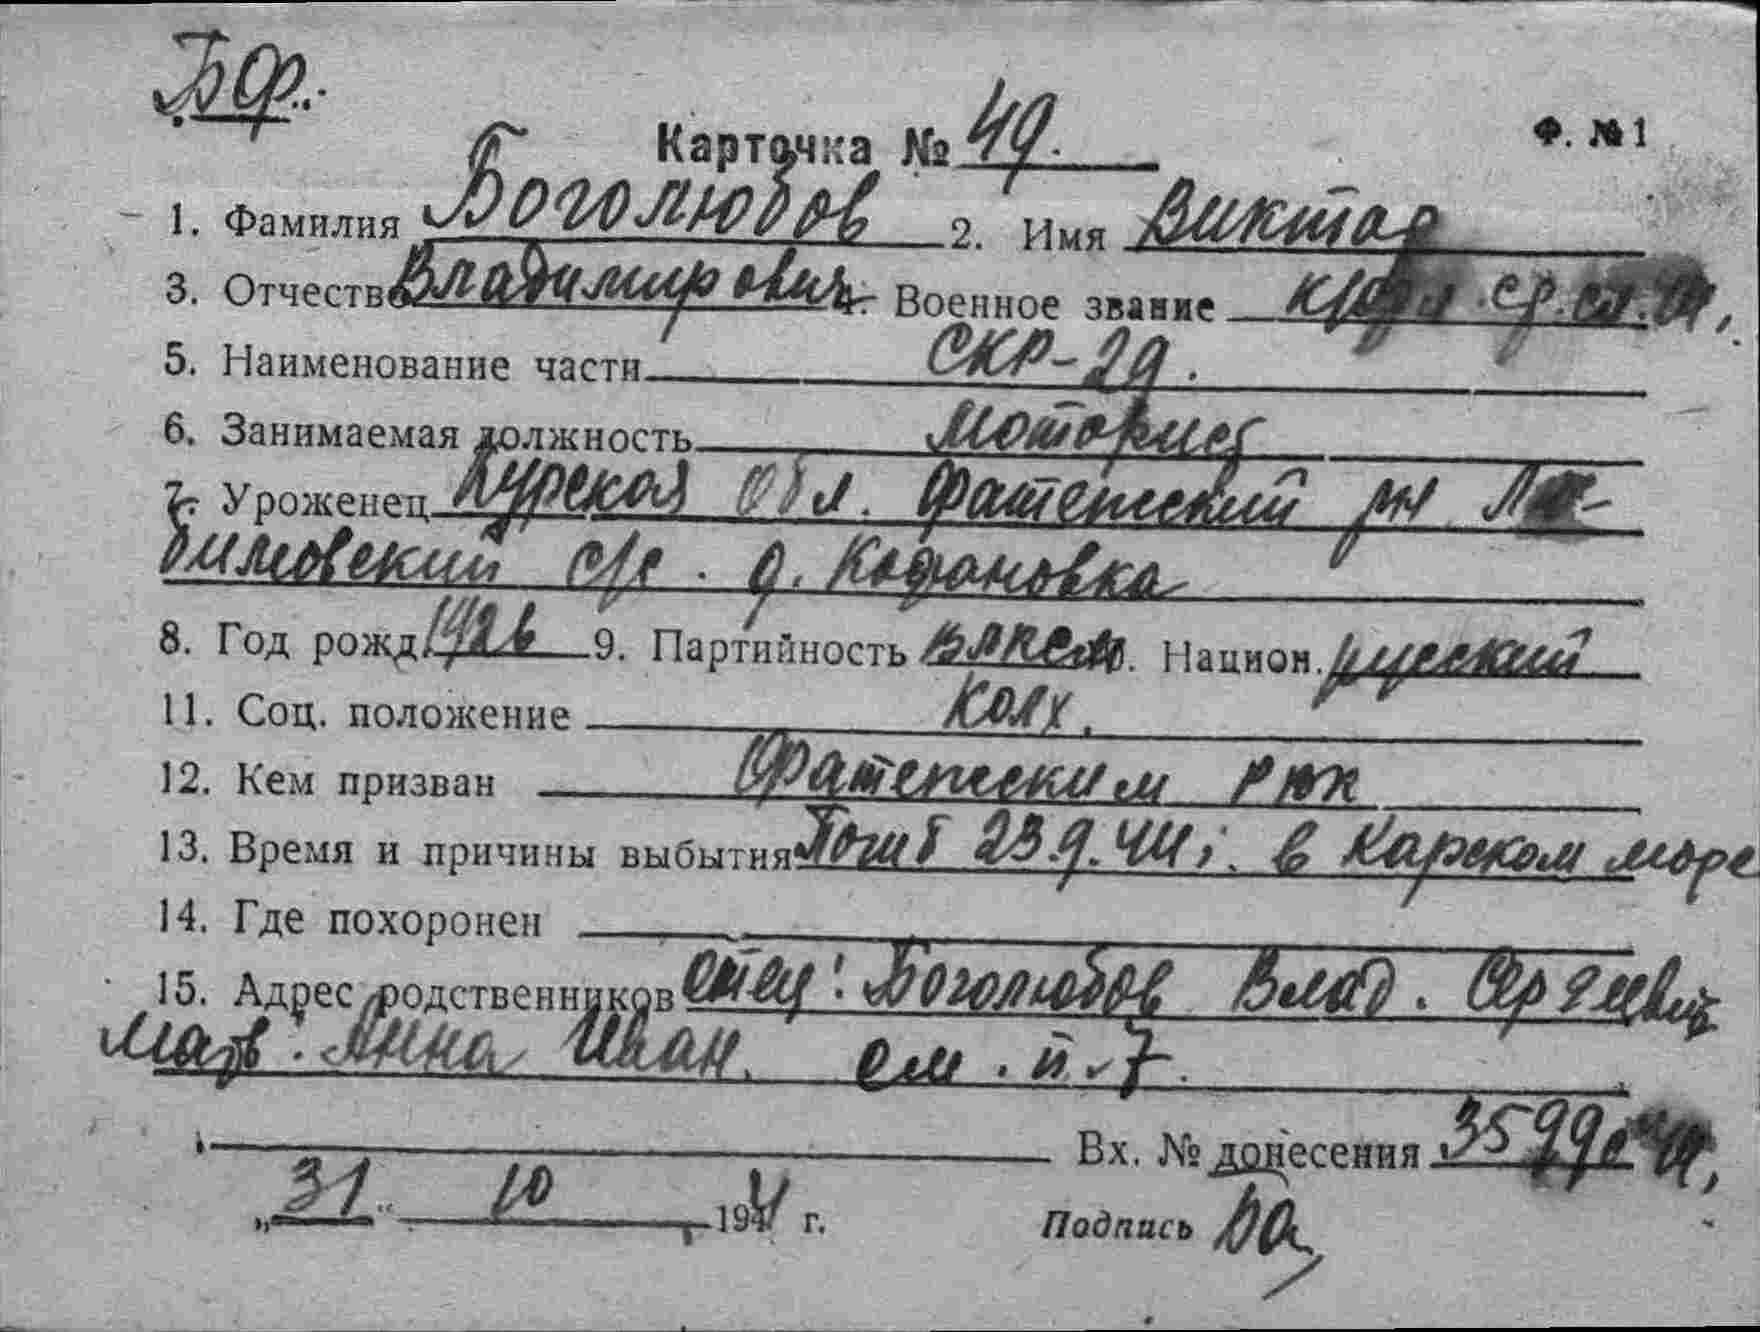 БФ.
Карточка № 49.
Ф. № 1
1. Фамилия Боголюбов 2. Имя Виктор
3. Отчество Владимирович 4. Военное звание к/фл ср. сл.
5. Наименование части СКР-29.
6. Занимаемая должность Моторист
7. Уроженец Курская обл. Фатежский рн
бимовский с/с. д. Кофановка
8. Год рожд. 1926 9. Партийность ВЛКСМ. Национ. русский
11. Соц. положение Колх.
12. Кем призван Фатежским РВК
13. Время и причины выбытия Погиб 23.9.44 г. в Карском море
14. Где похоронен
15. Адрес родственников отец: Боголюбов Влад. Сергеевич
Мать: Анна Иван. см. п. 7.
Вх. № донесения 3599с
„31" 10 1944 г. Подпись